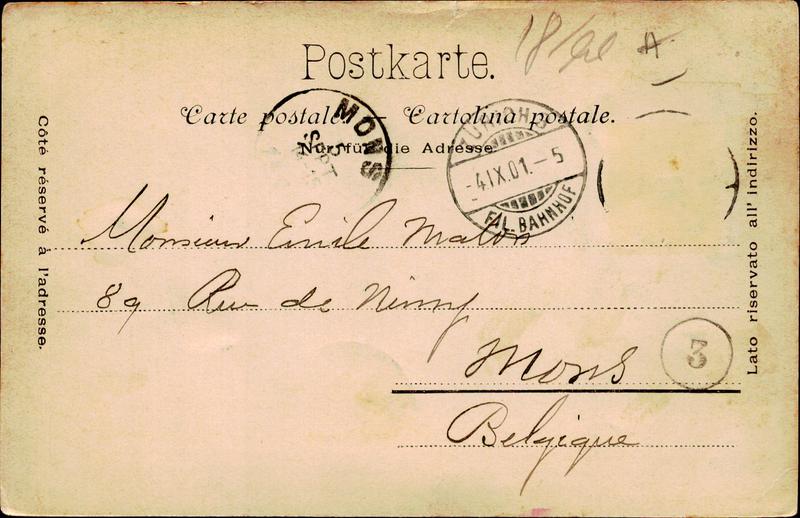 Postkarte.
Carte postale. — Cartolina postale.
Nur für die Adresse.
Côté réservé à l'adresse.
Lato riservato all' indirizzo.
MONS
SEPT
-4.IX.01.-5
FIL. BAHNHOF
A
Monsieur Emile
89 Rue de Nimy
Mons
3
Belgique